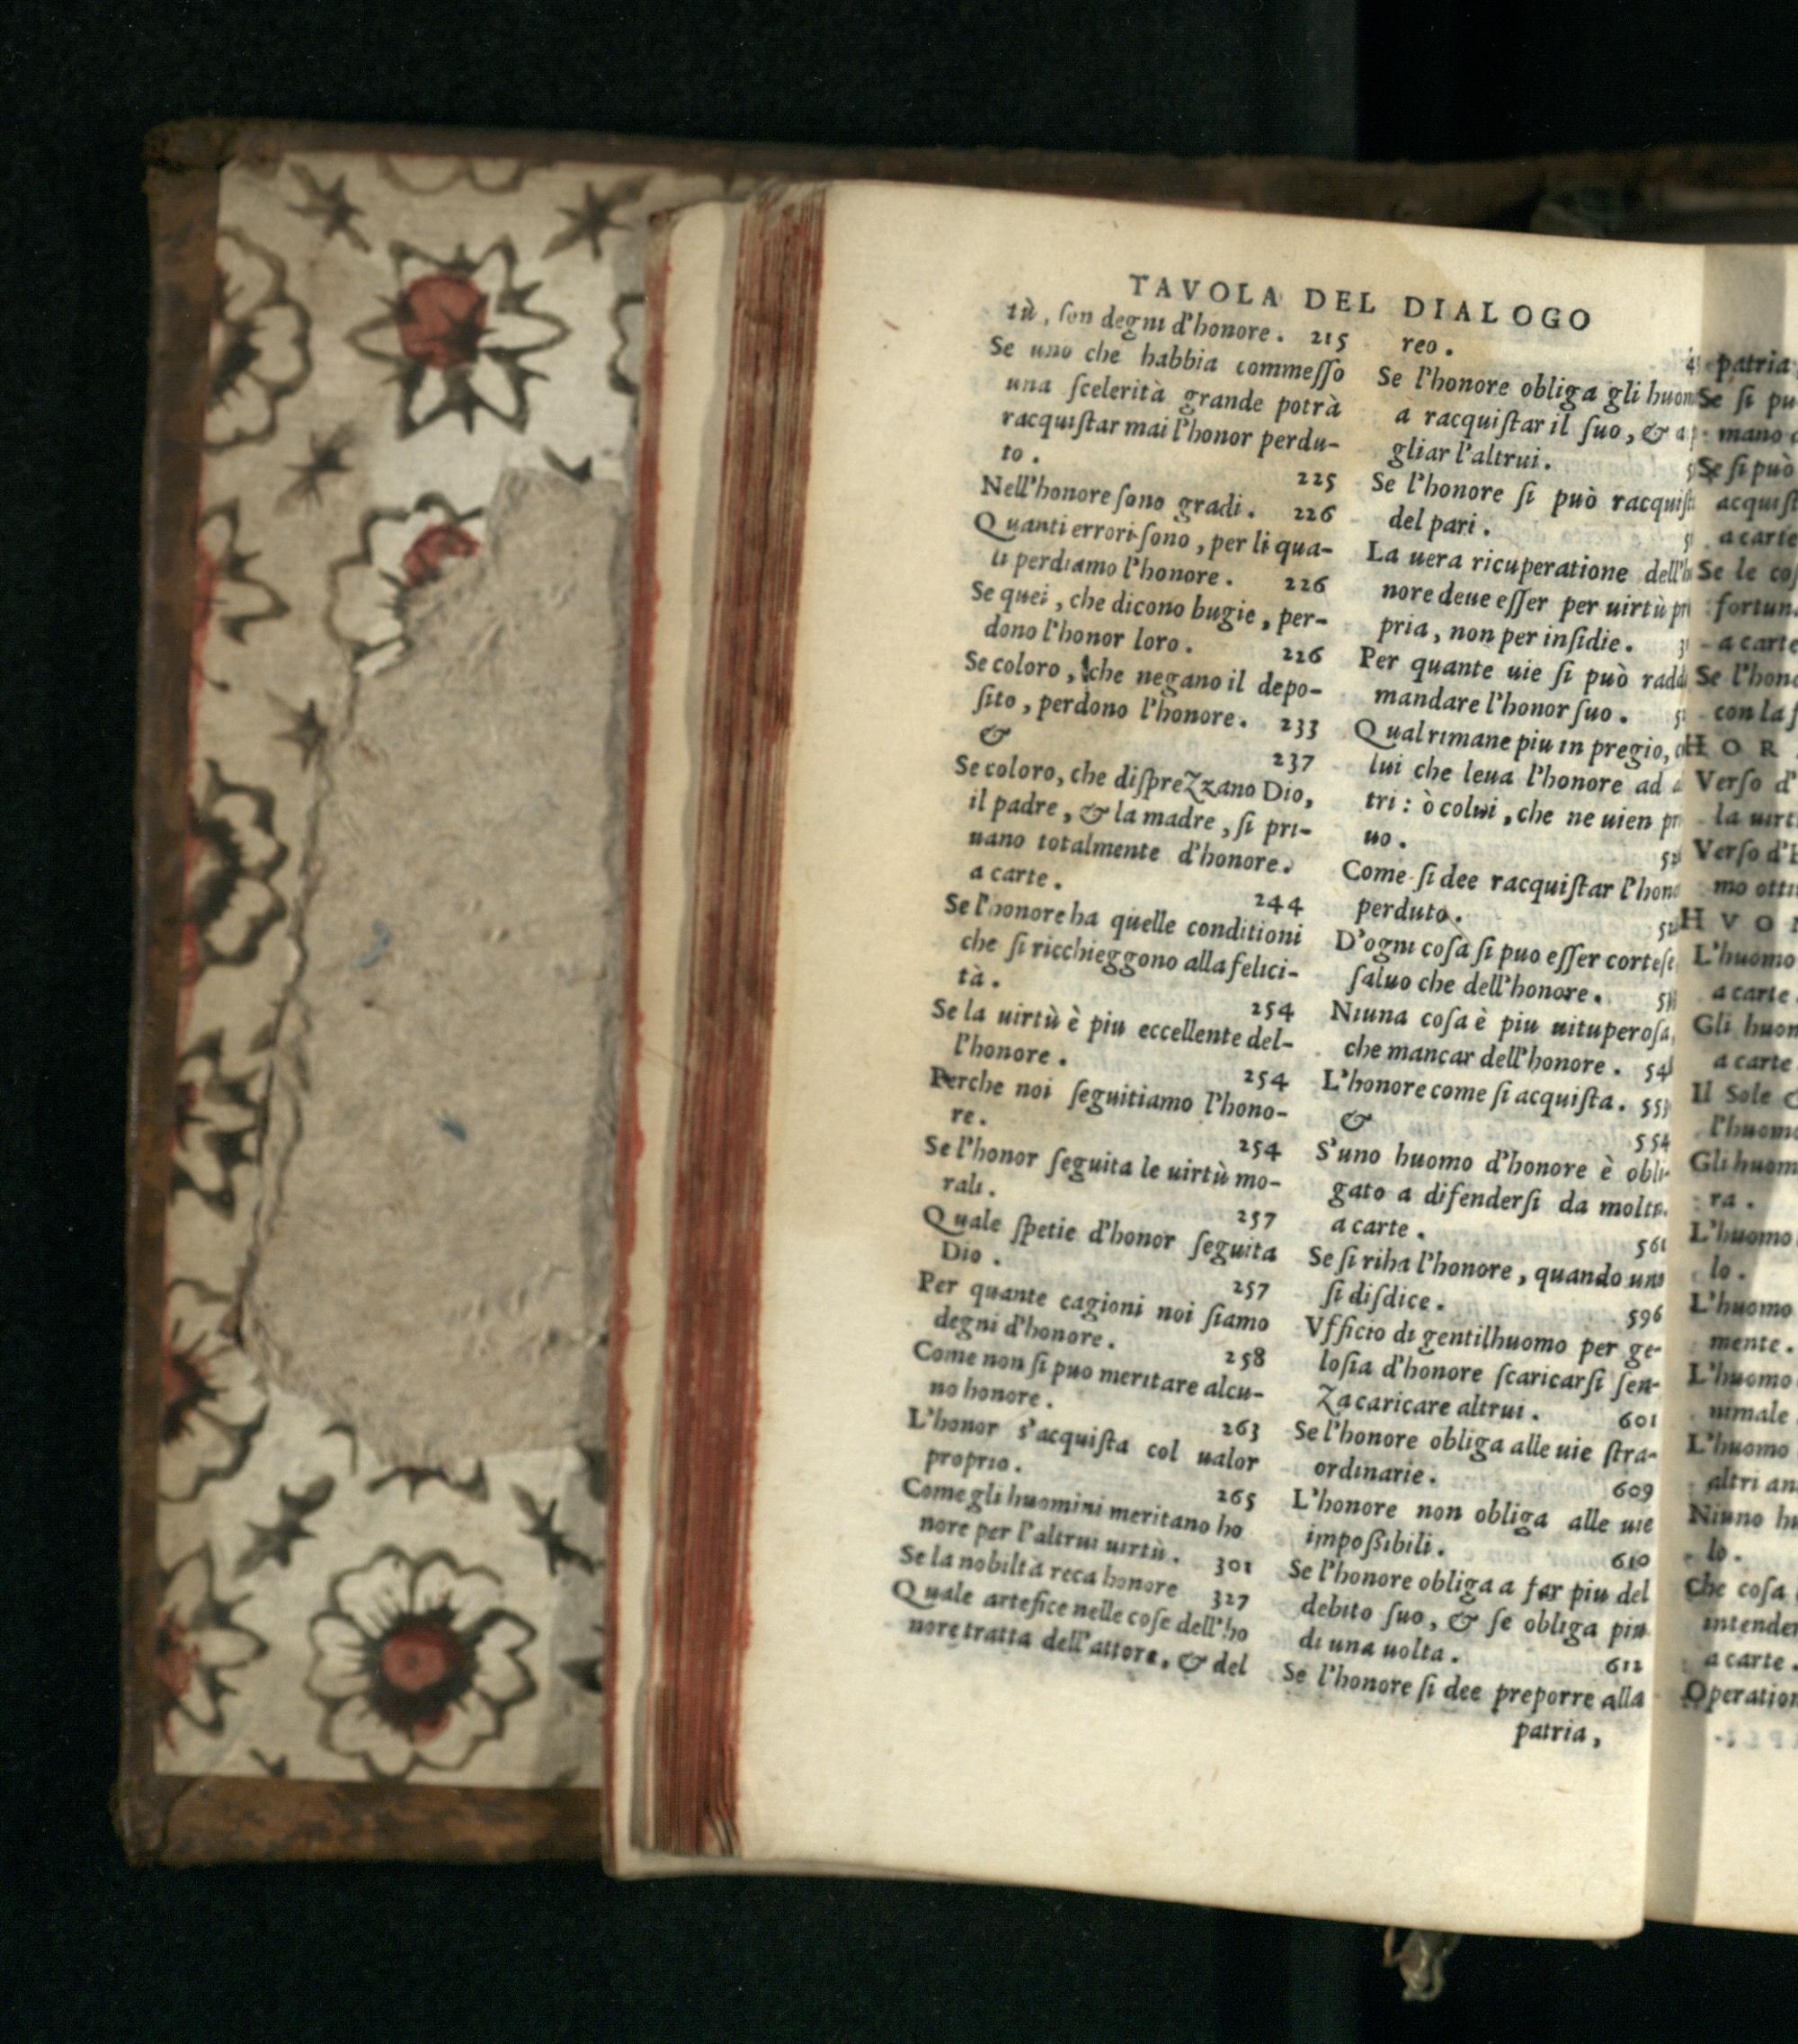 TAVOLA DEL DIALOGO
tù, ſon degni d'honore. 215
Se uno che habbia commeſſo
una ſcelerità grande potrà
racquiſtar mai l'honor perdu-
to. 225
Nell'honore ſono gradi. 226
Quanti errori ſono, per li qua-
li perdiamo l'honore. 226
Se quei, che dicono bugie, per-
dono l'honor loro. 226
Se coloro, che negano il depo-
ſito, perdono l'honore. 233
& 237
Se coloro, che diſprezzano Dio,
il padre, & la madre, ſi pri-
uano totalmente d'honore.
a carte. 244
Se l'honore ha quelle conditioni
che ſi ricchieggono alla felici-
tà. 254
Se la uirtù è piu eccellente del-
l'honore. 254
Perche noi ſeguitiamo l'hono-
re. 254
Se l'honor ſeguita le uirtù mo-
rali. 257
Quale ſpetie d'honor ſeguita
Dio. 257
Per quante cagioni noi ſiamo
degni d'honore. 258
Come non ſi puo meritare alcu-
no honore. 263
L'honor s'acquiſta col ualor
proprio. 265
Come gli huomini meritano ho
nore per l'altrui uirtù. 301
Se la nobiltà reca honore 327
Quale artefice nelle coſe dell'ho
nore tratta dell'attore, & del
reo.
Se l'honore obliga gli huom
à racquiſtar il ſuo, & a
gliar l'altrui.
Se l'honore ſi può racquiſt
del pari.
La uera ricuperatione dell'h
nore deue eſſer per uirtù pr
pria, non per inſidie.
Per quante uie ſi può radd
mandare l'honor ſuo.
Qual rimane piu in pregio, c
lui che leua l'honore ad a
tri: ò colui, che ne uien pr
uo.
Come ſi dee racquiſtar l'hono
perduto.
D'ogni coſa ſi puo eſſer corteſe
ſaluo che dell'honore.
Niuna coſa è piu uituperoſa,
che mancar dell'honore. 54
L'honore come ſi acquiſta. 553
& 554
S'uno huomo d'honore è obli-
gato a difenderſi da molti.
a carte. 561
Se ſi riha l'honore, quando uno
ſi diſdice. 596
Vfficio di gentilhuomo per ge-
loſia d'honore ſcaricarſi ſen-
za caricare altrui. 601
Se l'honore obliga alle uie ſtra-
ordinarie. 609
L'honore non obliga alle uie
impoſſibili. 610
Se l'honore obliga a far piu del
debito ſuo, & ſe obliga piu
di una uolta. 612
Se l'honore ſi dee preporre alla
patria,
patria
Se ſi pu
mano
Se ſi può
acquiſt
a carte
Se le coſ
fortun
a carte
Se l'hono
con la
HOR
Verſo d'
la uirt
Verſo d'
mo otti
HVOM
L'huomo
a carte.
Gli huom
a carte
Il Sole
l'huomo
Gli huom
ra.
L'huomo
lo.
L'huomo
mente.
L'huomo
nimale
L'huomo
altri an
Niuno hu
lo.
Che coſa
intender
a carte.
Operation